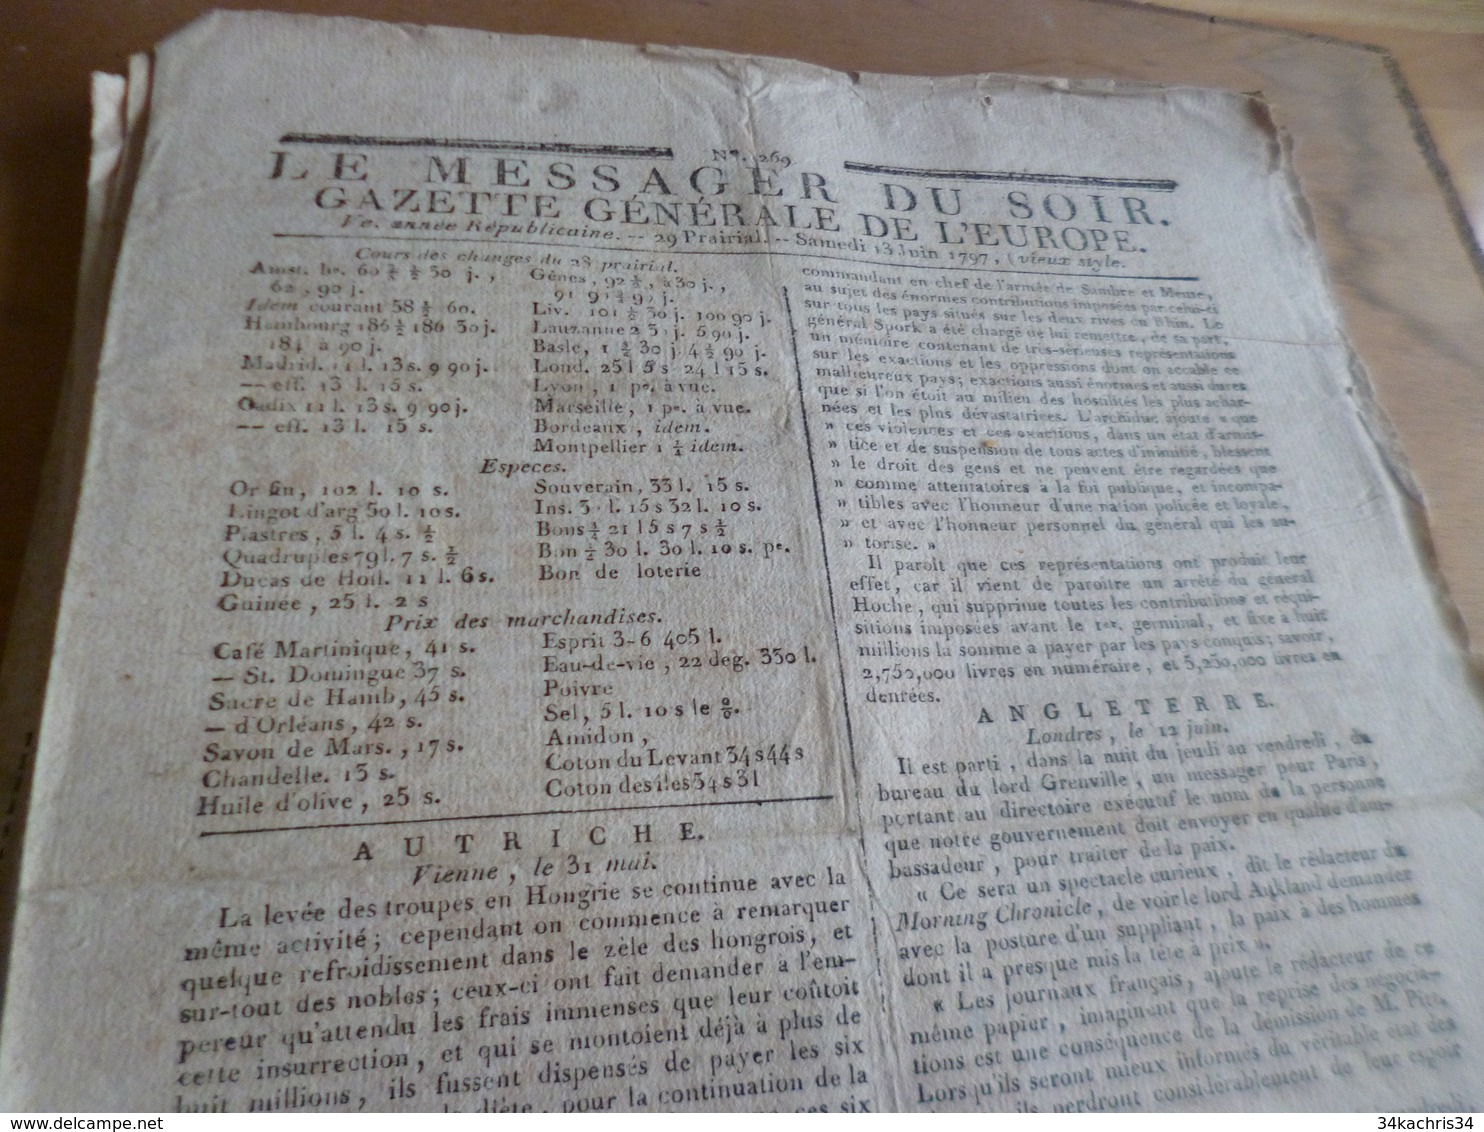 N°. 269.
LE MESSAGER DU SOIR.
GAZETTE GÉNÉRALE DE L'EUROPE.
Ve. année Républicaine. -- 29 Prairial. -- Samedi 13 Juin 1797, (vieux style.
Cours des changes du 28 prairial.
Amst. bc. 60 ½ ½ 30 j.,
62, 90 j.
Idem courant 58 ½ 60.
Hambourg 186 ½ 186 30 j.
184 à 90 j.
Madrid. 11 l. 13 s. 9 90 j.
— eff. 13 l. 15 s.
Cadix 11 l. 13 s. 9 90 j.
— eff. 13 l. 15 s.
Gênes, 92 ½, à 30 j.,
Liv. 101 ½ 30 j. 100 90 j.
Lauzanne 2 3 j. 5 90 j.
Basle, 1 ¾ 30 j. 4 ½ 90 j.
Lond. 25 l 5 s 24 l 15 s.
Lyon, 1 pe. à vue.
Marseille, 1 pe. à vue.
Bordeaux, idem.
Montpellier 1 ½ idem.
Especes.
Or fin, 102 l. 10 s.
Lingot d'arg 50 l. 10 s.
Piastres, 5 l. 4 s. ½
Quadruples 79 l. 7 s. ½
Ducas de Holl. 11 l. 6 s.
Guinée, 25 l. 2 s
Souverain, 33 l. 15 s.
Ins. 3 . l. 15 s 32 l. 10 s.
Bons ¼ 21 l 5 s 7 s ½
Bon ½ 30 l. 30 l. 10 s. pe.
Bon de loterie
Prix des marchandises.
Café Martinique, 41 s.
— St. Domingue 37 s.
Sucre de Hamb, 45 s.
— d'Orléans, 42 s.
Savon de Mars., 17 s.
Chandelle. 13 s.
Huile d'olive, 25 s.
Esprit 3-6 405 l.
Eau-de-vie, 22 deg. 330 l.
Poivre
Sel, 5 l. 10 s le %.
Amidon,
Coton du Levant 34 s 44 s
Coton des îles 54 s 3 l
AUTRICHE.
Vienne, le 31 mai.
La levée des troupes en Hongrie se continue avec la
même activité; cependant on commence à remarquer
quelque refroidissement dans le zèle des hongrois, et
sur-tout des nobles; ceux-ci ont fait demander à l'em-
pereur qu'attendu les frais immenses que leur coûtoit
cette insurrection, et qui se montoient déjà à plus de
huit millions, ils fussent dispensés de payer les six
la diète, pour la continuation de la
ces six
commandant en chef de l'armée de Sambre et Meuse,
au sujet des énormes contributions imposées par celui-ci
sur tous les pays situés sur les deux rives du Rhin. Le
général Spork a été chargé de lui remettre, de sa part,
un mémoire contenant de très-sérieuses représentations
sur les exactions et les oppressions dont on accable ce
malheureux pays; exactions aussi énormes et aussi dures
que si l'on étoit au milieu des hostilités les plus achar-
nées et les plus dévastatrices. L'archiduc ajoute « que
» ces violences et ces exactions, dans un état d'armis-
» tice et de suspension de tous actes d'inimitié, blessent
» le droit des gens et ne peuvent être regardées que
» comme attentatoires à la foi publique, et incompa-
» tibles avec l'honneur d'une nation policée et loyale,
» et avec l'honneur personnel du général qui les au-
» torise. »
Il paroît que ces représentations ont produit leur
effet, car il vient de paroître un arrêté du général
Hoche, qui supprime toutes les contributions et réqui-
sitions imposées avant le 1er. germinal, et fixe à huit
millions la somme à payer par les pays conquis; savoir,
2,750,000 livres en numéraire, et 5,250,000 livres en
denrées.
ANGLETERRE.
Londres, le 12 juin.
Il est parti, dans la nuit du jeudi au vendredi, du
bureau du lord Grenville, un messager pour Paris,
portant au directoire exécutif le nom de la personne
que notre gouvernement doit envoyer en qualité d'am-
bassadeur, pour traiter de la paix.
« Ce sera un spectacle curieux, dit le rédacteur du
Morning Chronicle, de voir le lord Aukland demander
avec la posture d'un suppliant, la paix à des hommes
dont il a presque mis la tête à prix ».
« Les journaux français, ajoute le rédacteur de ce
même papier, imaginent que la reprise des négocia-
tions est une conséquence de la démission de M. Pitt.
Lorsqu'ils seront mieux informés du véritable état des
perdront considérablement de leur espoir
34kachris34
34kachris34